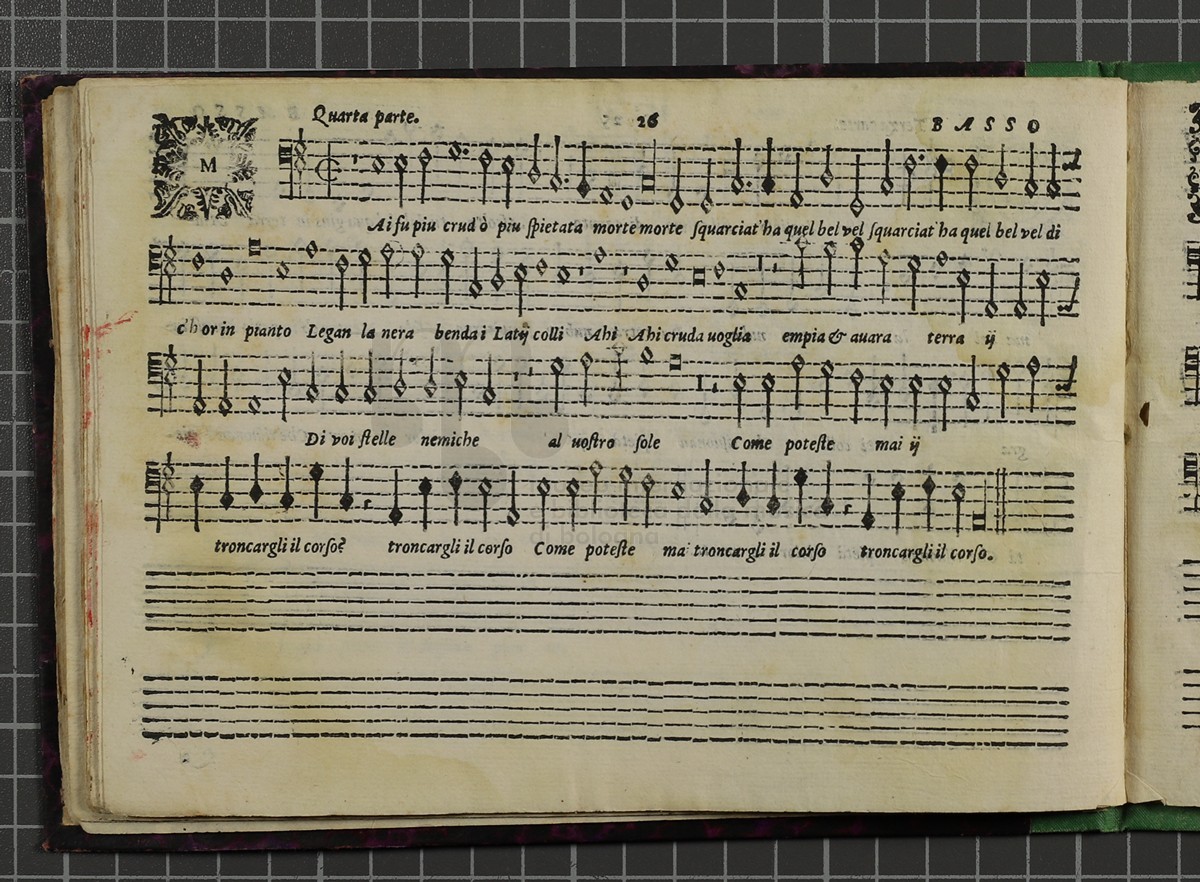 Quarta parte. 26 BASSO
M Ai fu piu crud ò piu spietata morte morte squarciat' ha quel bel vel squarciat' ha quel bel vel di
c'h or in pianto Legan la nera benda i Latij colli Ahi Ahi cruda uoglia empia & auara terra ij
Di voi stelle nemiche al uostro sole Come poteste mai ij
troncargli il corso? troncargli il corso Come poteste mai troncargli il corso troncargli il corso.
di bologna